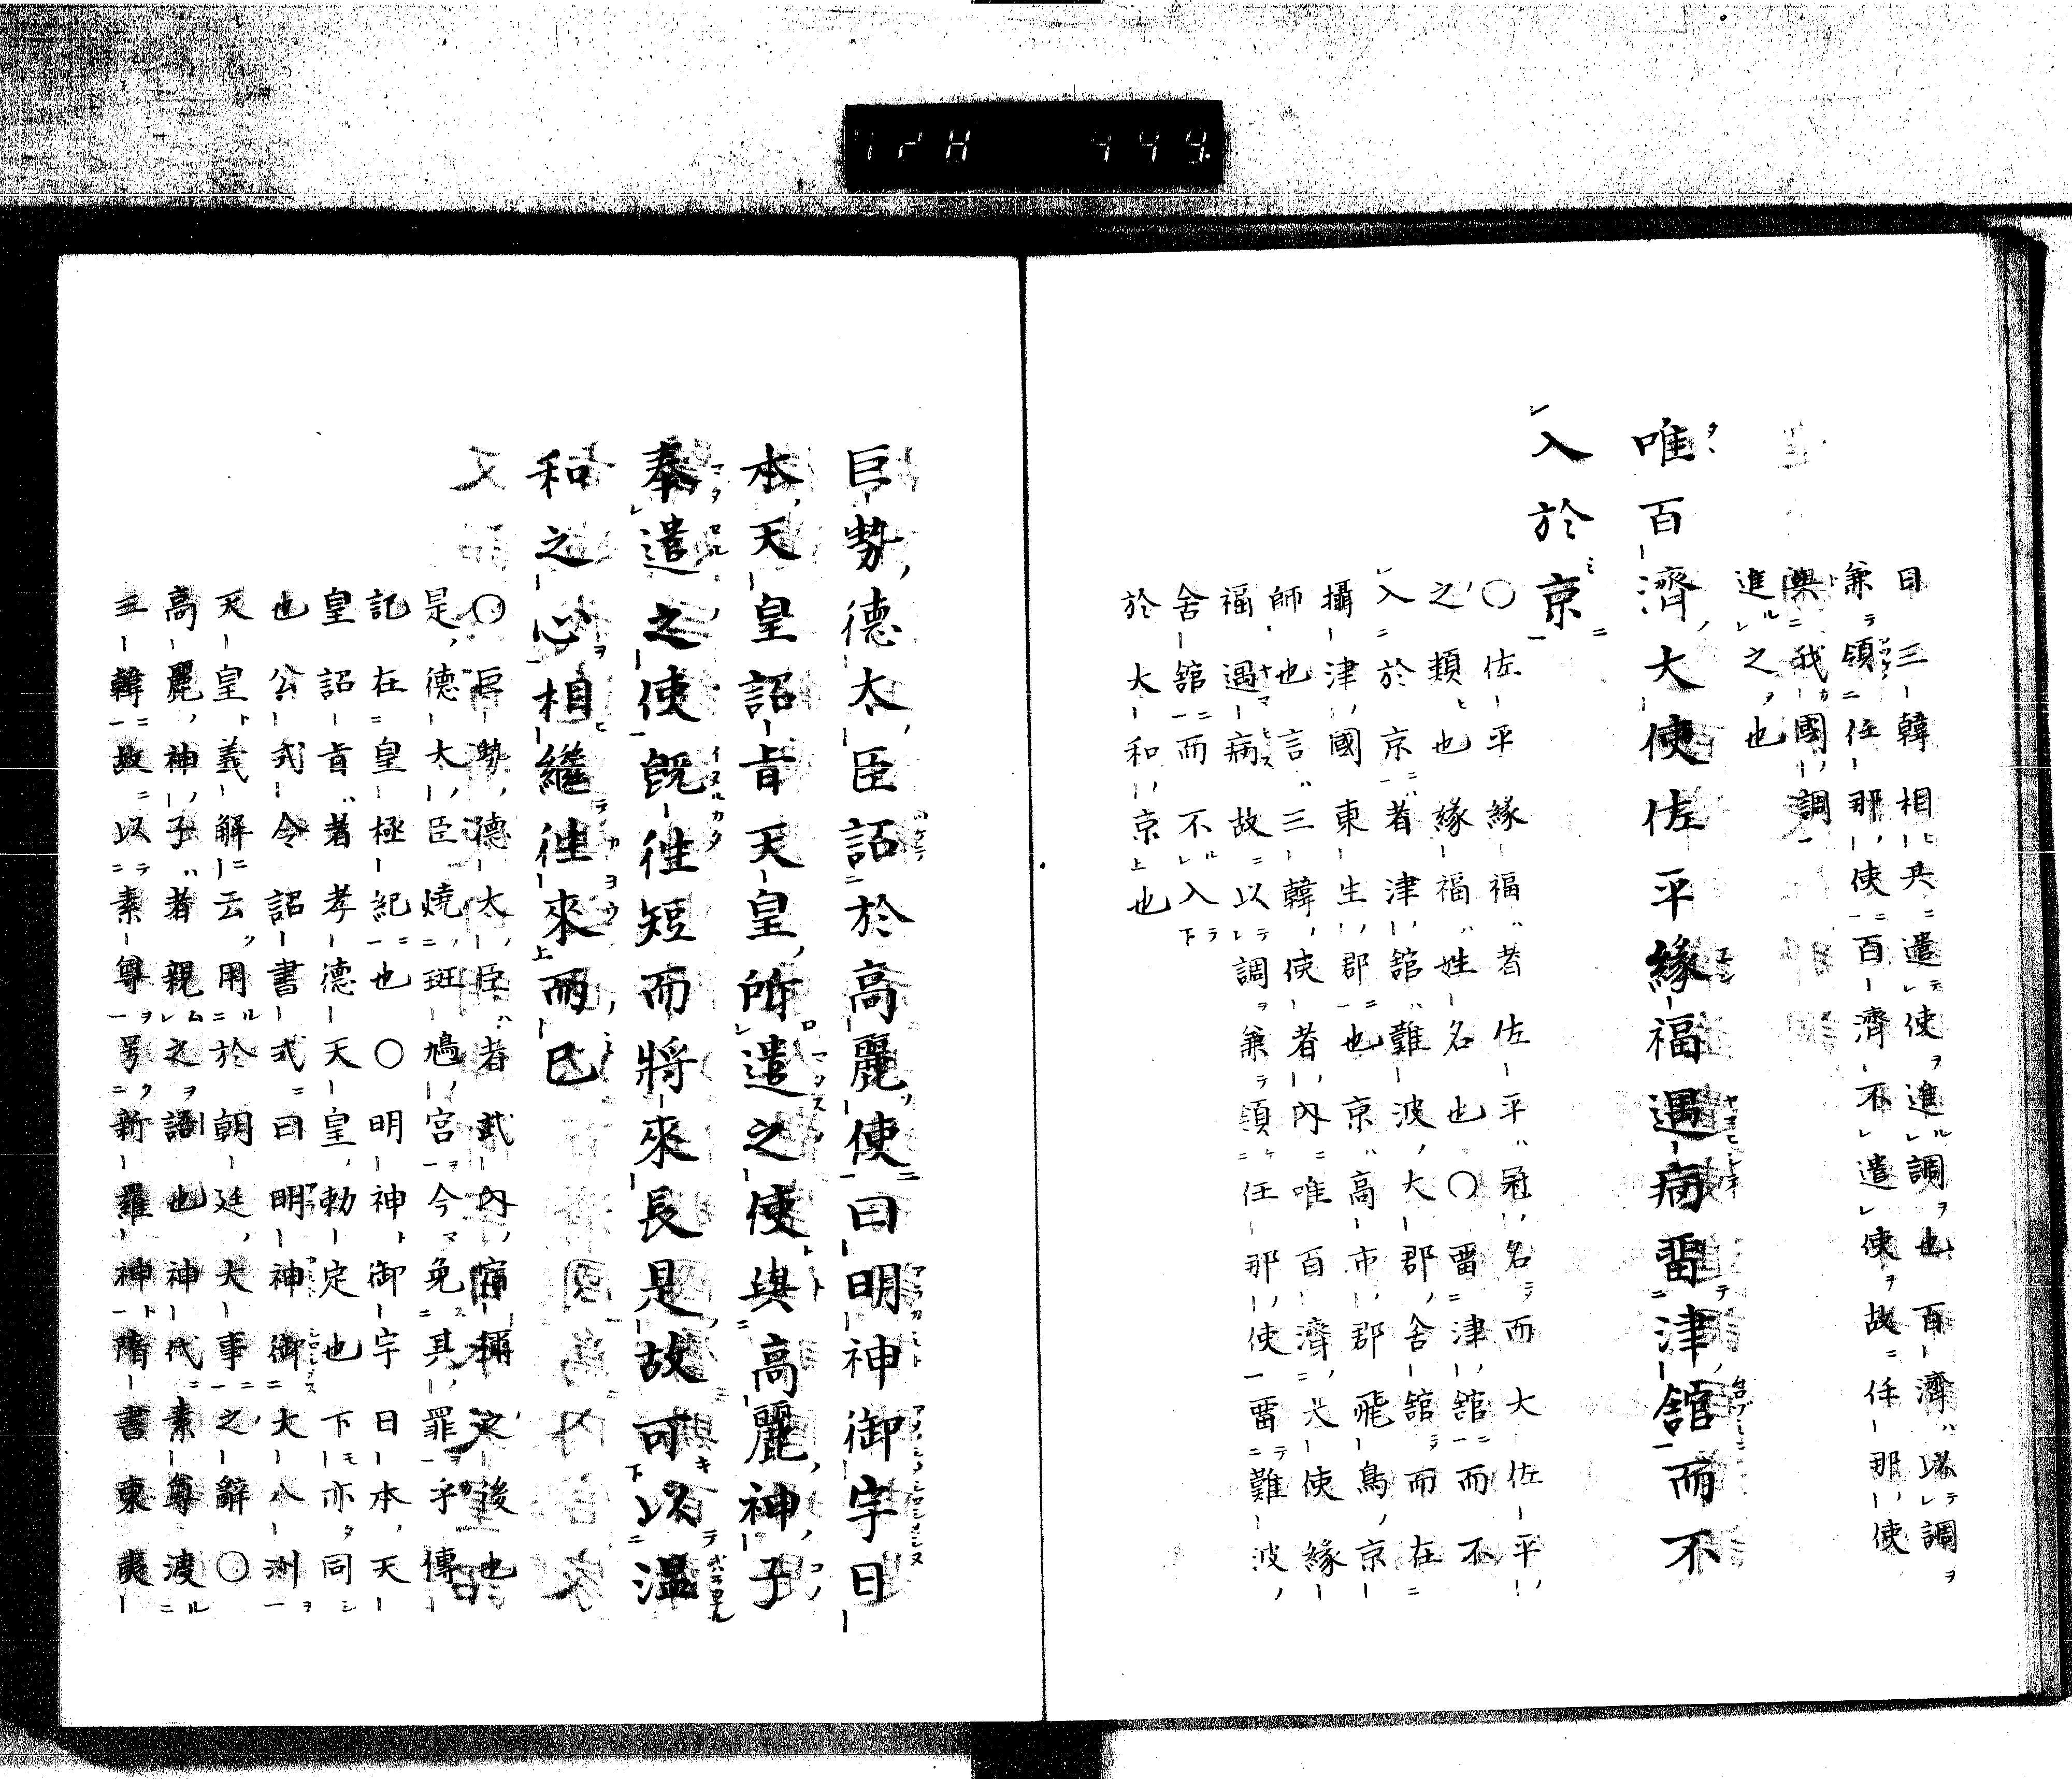 曰三韓相共遣使進調也百濟以調
兼領任那使百濟不遣使故任那使
與我國調
進之也
唯百濟大使佐平緣福遇病留津舘而不
入於京
〇佐平緣福者佐平冠名而大佐平
之類也緣福姓名也〇留津舘而不
入於京者津舘難波大郡舍舘而在
攝津國東生郡也京高市郡飛鳥京
師也言三韓使者內唯百濟大使緣
福遇病故以調兼領任那使留難波
舍舘而不入
於大和京也
巨勢德太臣詔於高麗使曰明神御宇日
本天皇詔旨天皇所遣之使與高麗神子
奉遣之使既往短而將來長是故可以溫
和之心相繼往來而已
〇巨勢德太臣者武內宿禰之後也
是德大臣燒斑鳩宮今免其罪乎傳
記在皇極紀也〇明神御宇日本天
皇詔旨者孝德天皇勅定也下亦同
也公式令詔書式曰明神御大八洲
天皇義解云用於朝廷大事之辭〇
高麗神子者親之語也神代素尊渡
三韓故以素尊号新羅神隋書東夷